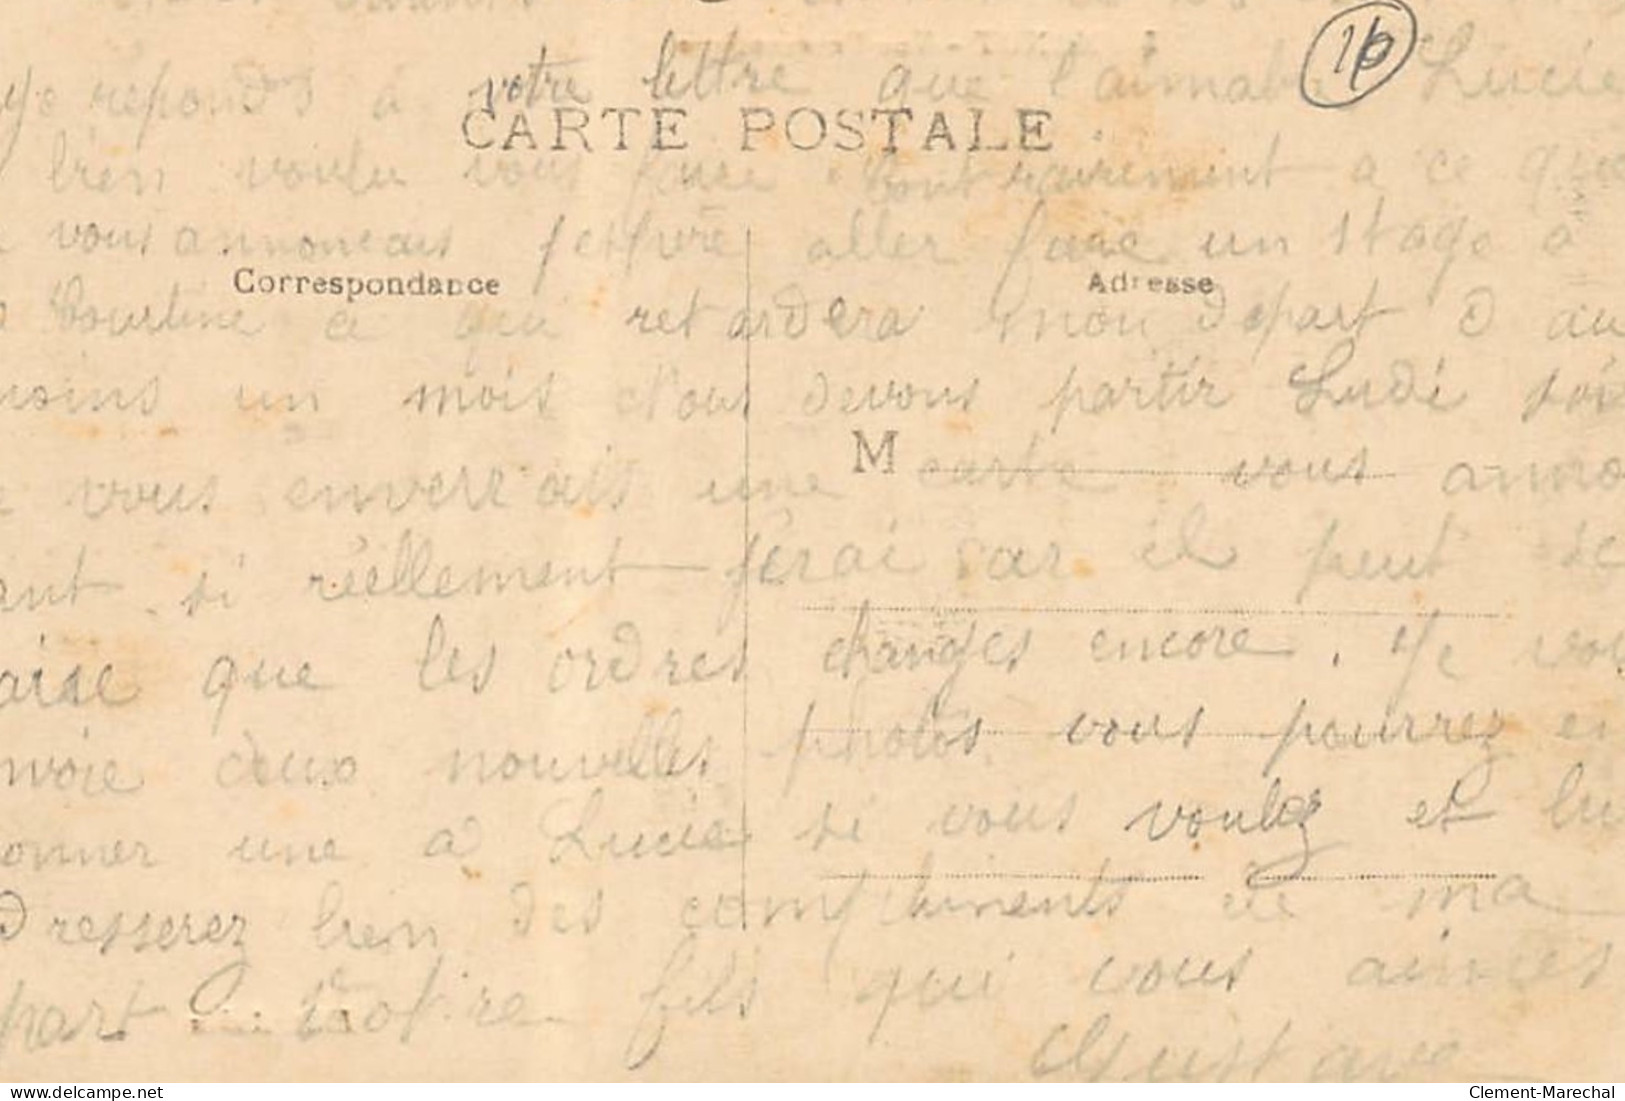 16
Je reponds à votre lettre que l'aimable Lucie
CARTE POSTALE
bien voulu vous faire Contrairement a ce que
vous annoncais aller faire un stage a
Correspondance Adresse
Courtine ce qui retardera mon depart d au
moins un mois Nous devons partir Ludi soir
M
vous enverrais une carte vous anno
ant si réellement j'irai car il peut se
aise que les ordres changes encore. Je vous
nvoie deux nouvelles photos. vous pourrez en
onner une a Lucie si vous voulez et lui
dresserez bien des compliments de ma
part Votre fils qui vous aimes
Gustave
delcampe.net
Clement-Marechal